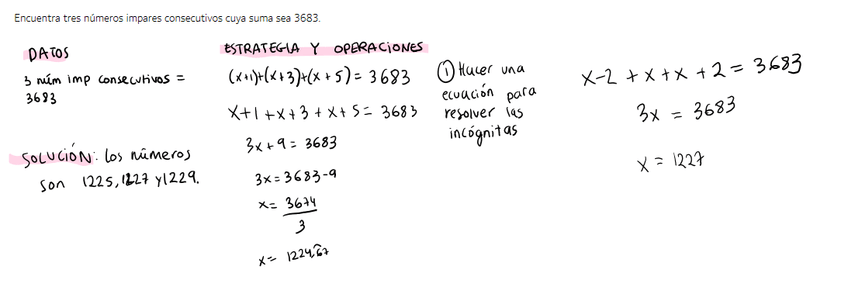 Encuentra tres números impares consecutivos cuya suma sea 3683.
DATOS
3 núm imp consecutivos =
3683
SOLUCIÓN: los números
son 1225, 1227 y 1229.
ESTRATEGIA Y OPERACIONES
(x+1)+(x+3)+(x+5) = 3683
x+1+x+3+x+5 = 3683
3x+9 = 3683
3x = 3683-9
x = 3674
3
x = 1224,67
① Hacer una
ecuación para
resolver las
incógnitas
x-2+x+x+2 = 3683
3x = 3683
x = 1227